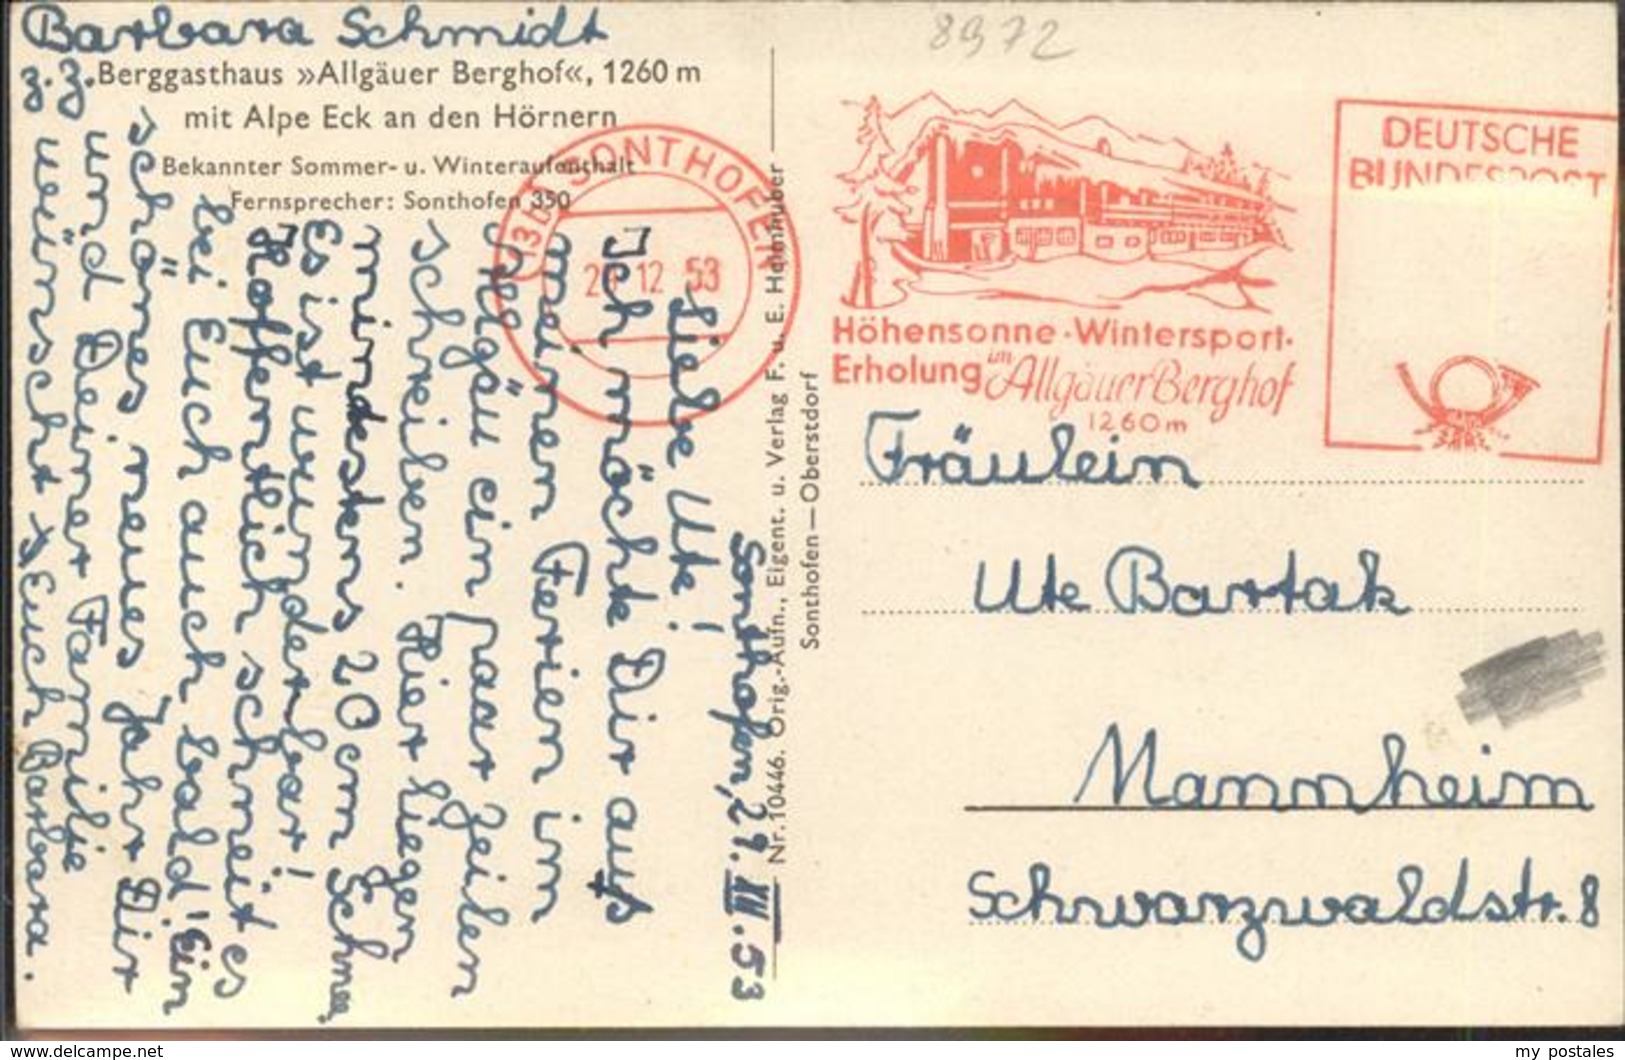 Barbara Schmidt
z. Z. Berggasthaus »Allgäuer Berghof«, 1260 m
mit Alpe Eck an den Hörnern
Bekannter Sommer- u. Winteraufenthalt
Fernsprecher: Sonthofen 350
Sonthofen, 29. XII. 53
Liebe Ute!
Ich möchte Dir auß
meinen Ferien im
Allgäu ein paar Zeilen
schreiben. Hier liegen
mindestens 20 cm Schnee,
Es ist wunderbar!
Hoffentlich schneit es
bei Euch auch bald! Ein
schönes neues Jahr Dir
und Deiner Familje
wünscht Euch Barbara.
Nr. 10446. Orig.-Aufn., Eigent. u. Verlag F. u. E. Heimhuber
Sonthofen—Oberstdorf
(13b) SONTHOFEN
12 53
8972
Höhensonne · Wintersport ·
Erholung im Allgäuer Berghof
1260 m
DEUTSCHE
BUNDESPOST
Fräulein
Ute Bartak
Mannheim
Schwarzwaldstr. 8
my postales
www.delcampe.net